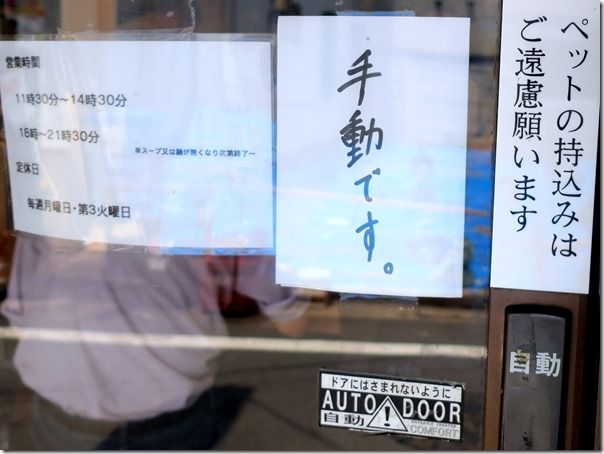 営業時間
11時30分〜14時30分
18時〜21時30分
※スープ又は麺が無くなり次第終了〜
定休日
毎週月曜日・第3火曜日
手動です。
ペットの持込みは
ご遠慮願います
自動
ドアにはさまれないように
AUTO DOOR
自動
ENTRANCE CREATER
COMFORT